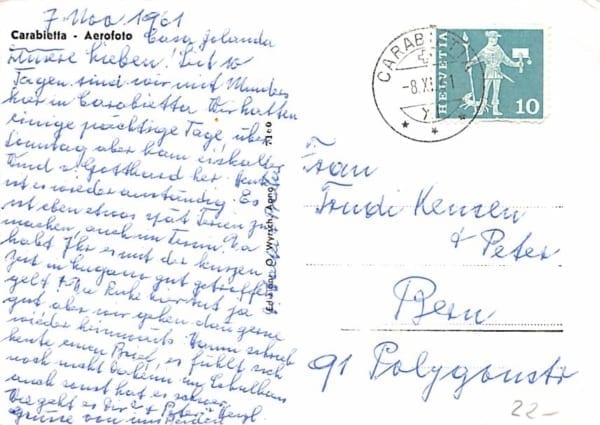 7. Nov. 1961
Carabietta - Aerofoto Casa Jolanda
Meine Lieben! Seit 10
Tagen sind wir mit
hier in Carabietta. Wir hatten
einige prächtige Tage, über
Sonntag aber kam eiskalter
Wind v. Gotthard her. Heute
ist es wieder anständig. Es
ist eben etwas spät Ferien zu
machen, auch im Tessin. Da
habt Ihr es mit der kurzen
Zeit in Lugano gut getroffen
gell! Die Ruhe hier tut ja
gut aber wir gehen dann gerne
wieder heimwärts. schrieb
heute einen Brief, es fühlt sich
noch nicht daheim im Schulhaus
auch sonst hat es schwer.
Wie geht es Dir & Peter? Herzl.
Grüsse von uns Beiden
7160
Edizioni O. Wyrsch, Agno
CARABIETTA
-8.XI.61
HELVETIA
10
Frau
Trudi
& Peter
Bern
91 Polygonstr
22.-